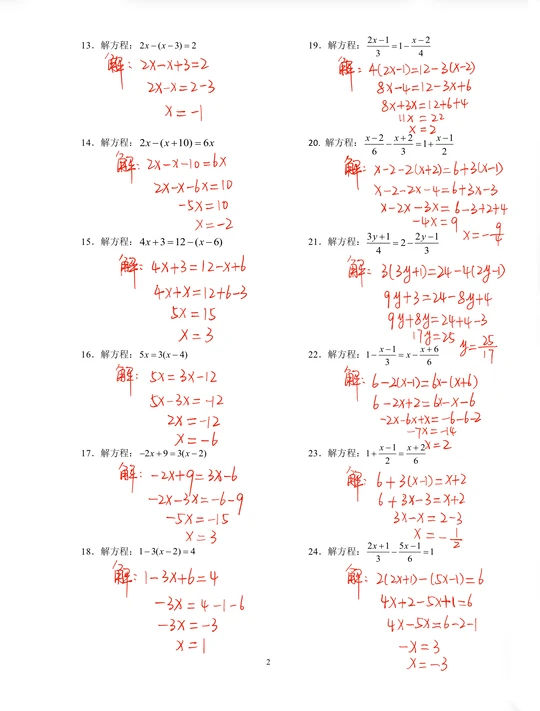 13．解方程：2x−(x−3)=2
解：2x−x+3=2
2x−x=2−3
x=−1
14．解方程：2x−(x+10)=6x
解：2x−x−10=6x
2x−x−6x=10
−5x=10
x=−2
15．解方程：4x+3=12−(x−6)
解：4x+3=12−x+6
4x+x=12+6−3
5x=15
x=3
16．解方程：5x=3(x−4)
解：5x=3x−12
5x−3x=−12
2x=−12
x=−6
17．解方程：−2x+9=3(x−2)
解：−2x+9=3x−6
−2x−3x=−6−9
−5x=−15
x=3
18．解方程：1−3(x−2)=4
解：1−3x+6=4
−3x=4−1−6
−3x=−3
x=1
19．解方程：(2x−1)/3=1−(x−2)/4
解：4(2x−1)=12−3(x−2)
8x−4=12−3x+6
8x+3x=12+6+4
11x=22
x=2
20. 解方程：(x−2)/6−(x+2)/3=1+(x−1)/2
解：x−2−2(x+2)=6+3(x−1)
x−2−2x−4=6+3x−3
x−2x−3x=6−3+2+4
−4x=9
x=−9/4
21．解方程：(3y+1)/4=2−(2y−1)/3
解：3(3y+1)=24−4(2y−1)
9y+3=24−8y+4
9y+8y=24+4−3
17y=25
y=25/17
22．解方程：1−(x−1)/3=x−(x+6)/6
解：6−2(x−1)=6x−(x+6)
6−2x+2=6x−x−6
−2x−6x+x=−6−6−2
−7x=−14
x=2
23．解方程：1+(x−1)/2=(x+2)/6
解：6+3(x−1)=x+2
6+3x−3=x+2
3x−x=2−3
x=−1/2
24．解方程：(2x+1)/3−(5x−1)/6=1
解：2(2x+1)−(5x−1)=6
4x+2−5x+1=6
4x−5x=6−2−1
−x=3
x=−3
2